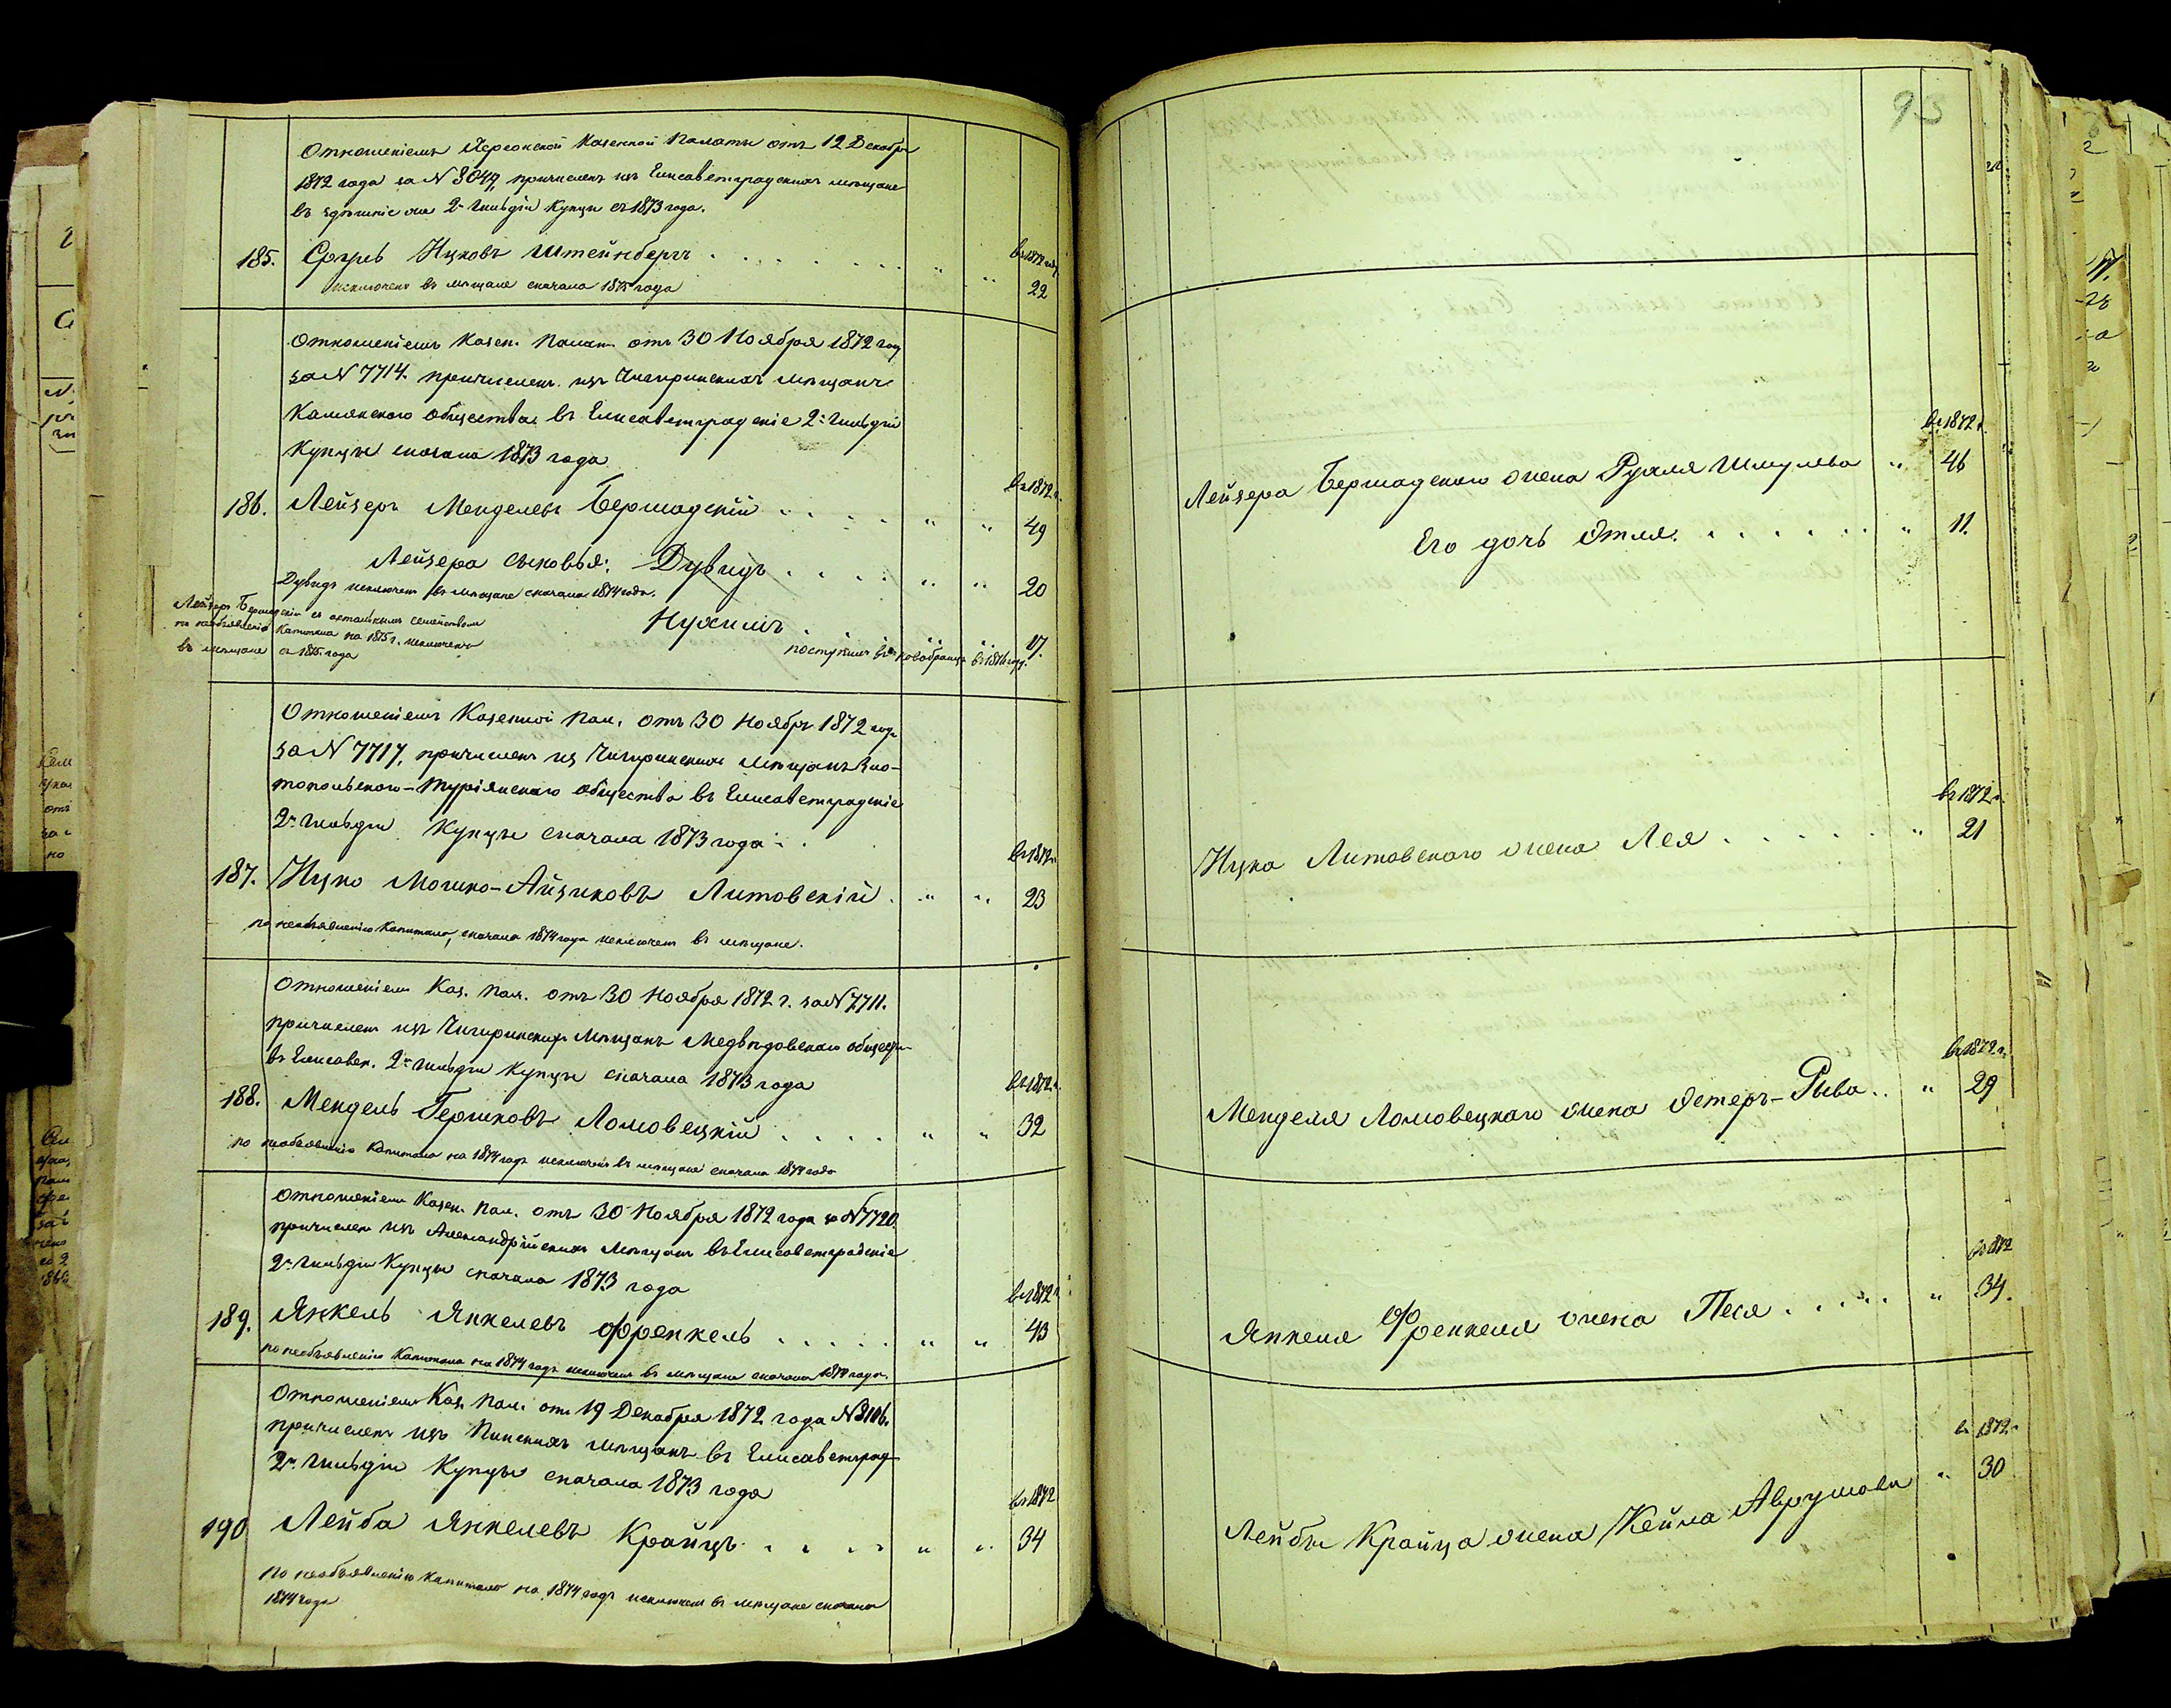 Отношеніемъ Херсонской Казенной Палаты отъ 12 Декабр
1872 года за N 8049, причисленъ изъ Елисаветградскихъ мѣщанъ
въ здѣшніе 2й Гильдіи Купцы съ 1873 года.
въ 1872 году
185. Сруль Ицковъ Штейнбергъ . . . . . . " " 22
исключенъ въ мѣщане сначала 1875 года
Отношеніемъ Казен. Палат. отъ 30 Ноября 1872 году
за N 7714. причисленъ изъ Чигиринскихъ мѣщанъ
Камянского общества въ Елисаветградскіе 2й Гильдіи
Купцы сначала 1873 года
въ 1872 г.
186. Лейзеръ Менделевъ Бершадскій . . . . " " 49
Лейзера сыновья: Дувидъ . . . . " " 20
Дувидъ исключенъ въ мѣщане сначала 1874 года.
Нухимъ . . . . " " 17.
Лейзеръ Бершадскій съ остальнымъ семействомъ
по необъявленію Капитала на 1875 г. исключенъ
въ мѣщане съ 1875 года
поступилъ въ новобранцы въ 1876 году.
Отношеніемъ Казенной Пал. отъ 30 Ноября 1872 года
за N 7717, причисленъ изъ Чигиринскихъ мѣщанъ Зло-
топольского-Турiянскаго общества въ Елисаветградскіе
2й Гильдіи Купцы сначала 1873 года
въ 1872 г.
187. Ицко Мошко-Айзиковъ Литовскій . " " 23
по необъявленію Капитала, сначала 1874 года исключенъ въ мѣщане.
Отношеніемъ Каз. Пал. отъ 30 Ноября 1872 г. за N 7711.
причисленъ изъ Чигиринскихъ мѣщанъ Медвѣдовскаго общест
въ Елисавет. 2й Гильдіи Купцы сначала 1873 года
въ 1872 г.
188. Мендель Гершковъ Ломовецкій . . . . " " 32
по необъявленію Капитала на 1874 годъ исключенъ въ мѣщане сначала 1874 года
Отношеніемъ Казен. Пал. отъ 30 Ноября 1872 года за N 7720
причисленъ изъ Александрійскихъ мѣщанъ въ Елисаветградскіе
2й Гильдіи Купцы сначала 1873 года
въ 1872 г.
189. Янкель Янкелевъ Френкель . . . . . " " 43
по необъявленію Капитала на 1874 годъ исключенъ въ мѣщане сначала 1874 года.
Отношеніемъ Каз. Пал. отъ 19 Декабря 1872 года N 8106.
причисленъ изъ Пинскихъ мѣщанъ въ Елисаветград
2й Гильдіи Купцы сначала 1873 года
въ 1872
190 Лейба Янкелевъ Крайцъ . . . . " " 34
по необъявленію Капитала на 1874 годъ исключенъ въ мѣщане сначала
1874 года
95
въ 1872 г.
Лейзера Бершадскаго жена Рухля Шмулева " 46
Его дочь Этля . . . . . . " 11.
въ 1872 г.
Ицка Литовскаго жена Лея . . . . . " 21
въ 1872 г.
Менделя Ломовецкаго жена Эстеръ-Рыва . . " 29
въ 1872
Янкеля Френкеля жена Песя . . . . . " 34.
въ 1872 г.
Лейбы Крайца жена Кейла Аврумова " 30